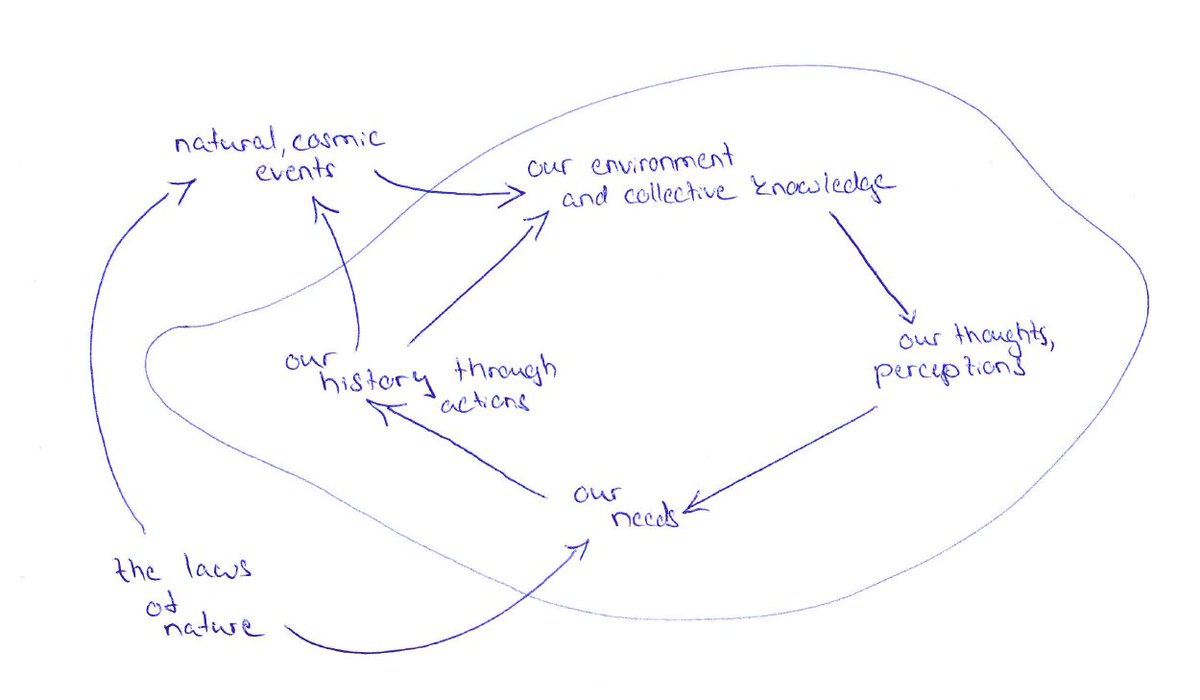 natural, cosmic
events
our environment
and collective knowledge
our thoughts,
perceptions
our
history through
actions
our
needs
the laws
of
nature